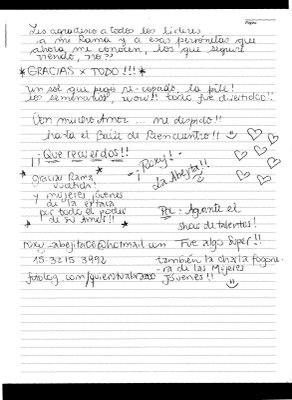 Página
Les agradezco a todos los lideres
a mi Rama y a esas personitas que
ahora me conocen, los que seguiré
viendo, no??
*GRACIAS x TODO!!!*
Un sol que pegó re-copado, la pile!
los seminarios, wow!! todo fue divertido!!
Con mucho Amor ... me despido!!
hasta el Baile de Reencuentro!!
¡¡Que recuerdos!!
¡Roxy!
La Abejita!!
Gracias Rama
y mujeres jóvenes
de la estaca
por todo el poder
de su Amor!!
PD: Aguante el
show de talentos!
Roxy-abejita06@hotmail.com
Fue algo Super!!
15 3215 3992
también la charla fogone-
ra de las Mujeres
Jóvenes!!